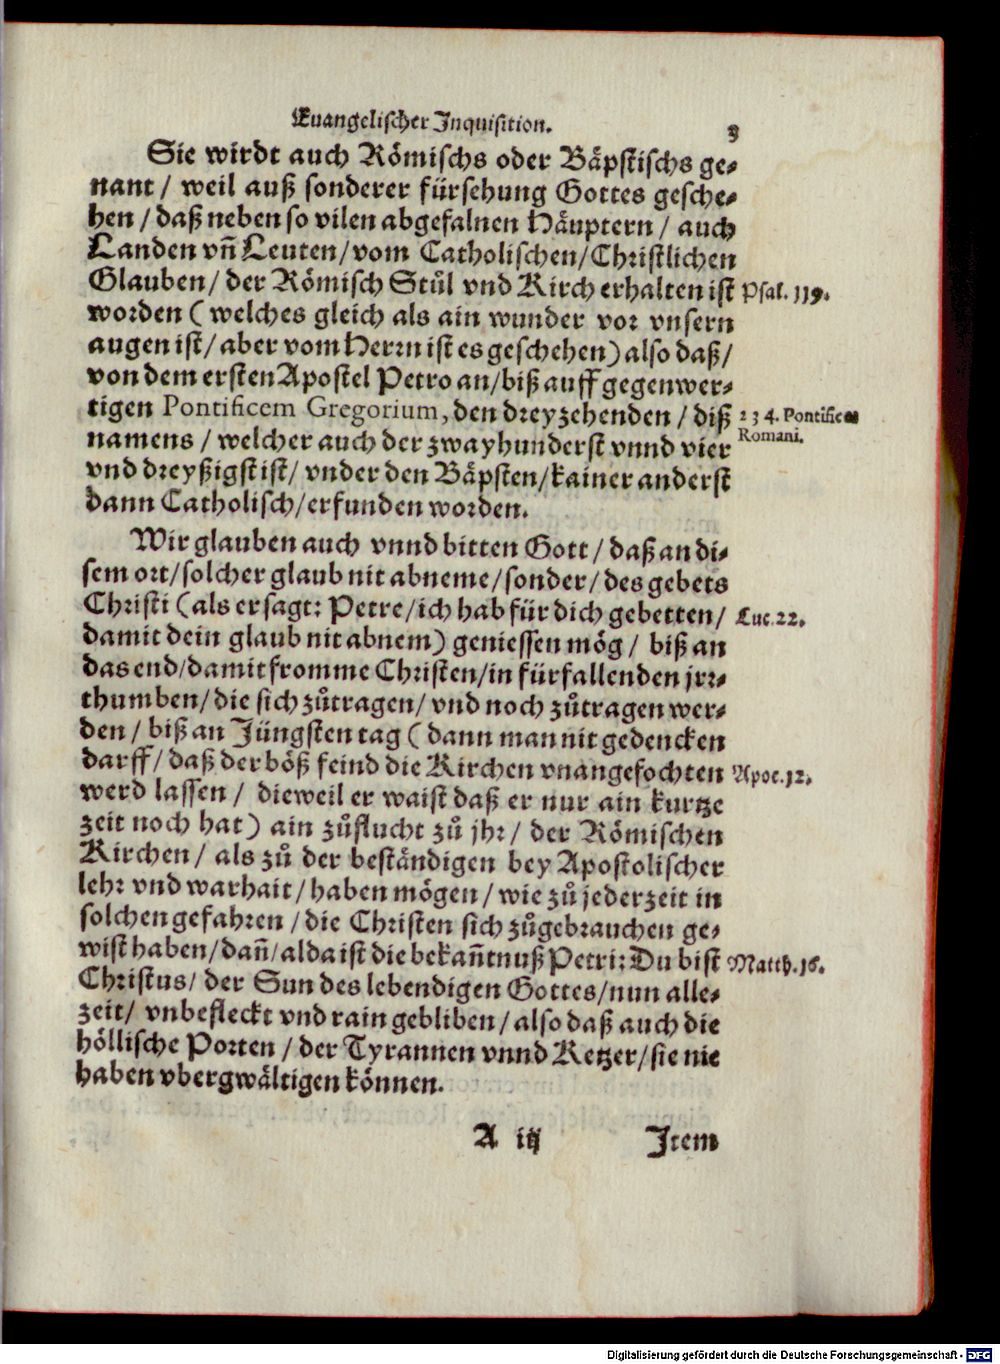 Euangelischer Inquisition.
3
Sie wirdt auch Römischs oder Bäpstischs ge-
nant / weil auß sonderer fürsehung Gottes gesche-
hen / daß neben so vilen abgefalnen Häuptern / auch
Landen vñ Leuten / vom Catholischen / Christlichen
Glauben / der Römisch Stůl vnd Kirch erhalten ist
Psal. 119.
worden ( welches gleich als ain wunder vor vnsern
augen ist / aber vom Herrn ist es geschehen ) also daß /
von dem ersten Apostel Petro an / biß auff gegenwer-
tigen Pontificem Gregorium, den dreyzehenden / diß
234. Pontifices
namens / welcher auch der zwayhunderst vnnd vier
Romani.
vnd dreyßigst ist / vnder den Bäpsten / kainer anderst
dann Catholisch / erfunden worden.
Wir glauben auch vnnd bitten Gott / daß an di-
sem ort / solcher glaub nit abneme / sonder / des gebets
Christi ( als er sagt: Petre / ich hab für dich gebetten /
Luc. 22.
damit dein glaub nit abnem ) geniessen mög / biß an
das end / damit fromme Christen / in fürfallenden jrr-
thumben / die sich zůtragen / vnd noch zůtragen wer-
den / biß an Jüngsten tag ( dann man nit gedencken
darff / daß der böß feind die Kirchen vnangefochten
Apoc. 12.
werd lassen / dieweil er waist daß er nur ain kurtze
zeit noch hat ) ain zůflucht zů jhr / der Römischen
Kirchen / als zů der beständigen bey Apostolischer
lehr vnd warhait / haben mögen / wie zů jederzeit in
solchen gefahren / die Christen sich zůgebrauchen ge-
wist haben / dañ / alda ist die bekañtnuß Petri: Du bist
Matth. 16.
Christus / der Sun des lebendigen Gottes / nun alle-
zeit / vnbefleckt vnd rain gebliben / also daß auch die
höllische Porten / der Tyrannen vnnd Ketzer / sie nie
haben vbergwältigen können.
A iij
Item
Digitalisierung gefördert durch die Deutsche Forschungsgemeinschaft - DFG